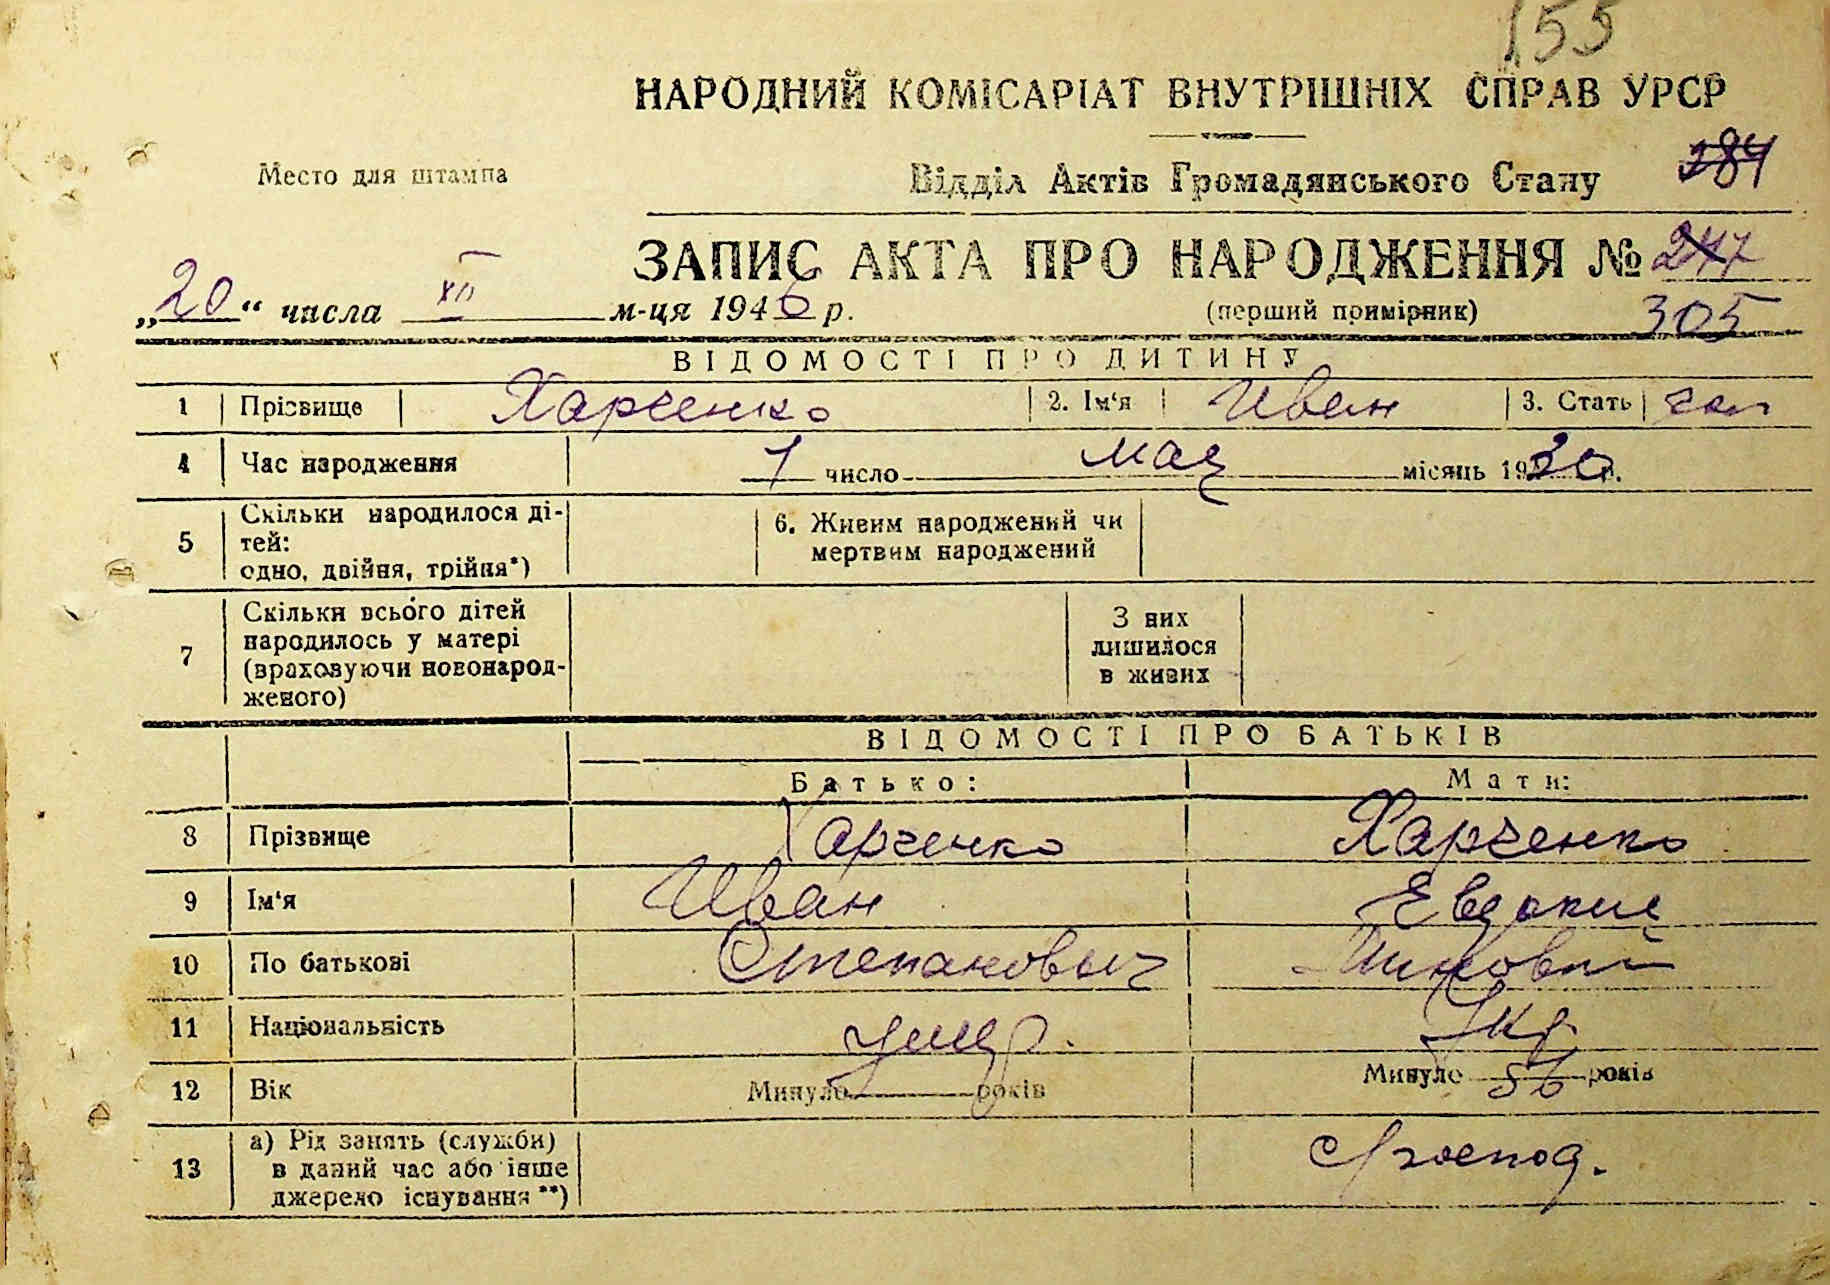 155
НАРОДНИЙ КОМІСАРІАТ ВНУТРІШНІХ СПРАВ УРСР
Место для штампа
Відділ Актів Громадянського Стану 284
ЗАПИС АКТА ПРО НАРОДЖЕННЯ № 247
„20“ числа XII м-ця 1946 р.
(перший примірник) 305
ВІДОМОСТІ ПРО ДИТИНУ
1 Прізвище Харченко 2. Ім'я Иван 3. Стать чол
4 Час народження 1 число мая місяць 1930 р.
5 Скільки народилося ді-
тей:
одно, двійня, трійня*)
6. Живим народжений чи
мертвим народжений
7 Скільки всього дітей
народилось у матері
(враховуючи новонарод-
женого)
З них
лишилося
в живих
ВІДОМОСТІ ПРО БАТЬКІВ
Батько: Мати:
8 Прізвище Харченко Харченко
9 Ім'я Иван Евдокия
10 По батькові Степанович
11 Національність умер. Укр.
12 Вік Минуло років Минуло 56 років
13 а) Рід занять (служби)
в даний час або інше
джерело існування **)
господ.